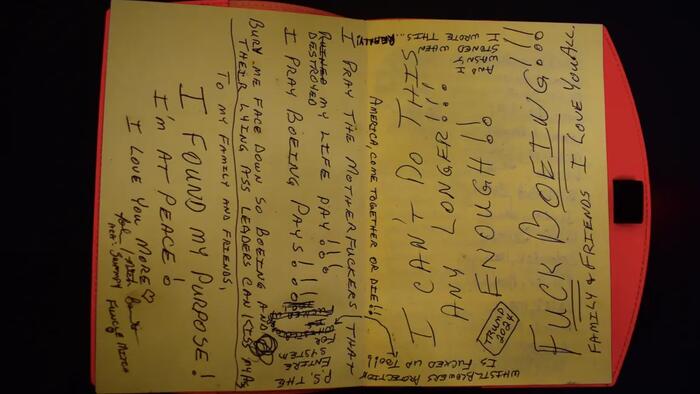 I CAN'T DO THIS
ANY LONGER!!!
ENOUGH!!
FUCK BOEING!!!
FAMILY & FRIENDS I LOVE YOU ALL.
TRUMP
2024
I WROTE THIS...
WASN'T
STONED WHEN
AND
REALLY!
AMERICA, COME TOGETHER OR DIE!!
I PRAY THE MOTHERFUCKERS THAT
DESTROYED MY LIFE PAY!!!
I PRAY BOEING PAYS!!!
BURY ME FACE DOWN SO BOEING AND
THEIR LYING ASS LEADERS CAN KISS MY ASS
TO MY FAMILY AND FRIENDS,
I FOUND MY PURPOSE!
I'M AT PEACE!
I LOVE YOU MORE♡
P.S. THE
ENTIRE
SYSTEM
FOR
WHISTLEBLOWERS PROTECTION
IS FUCKED UP TOO!!